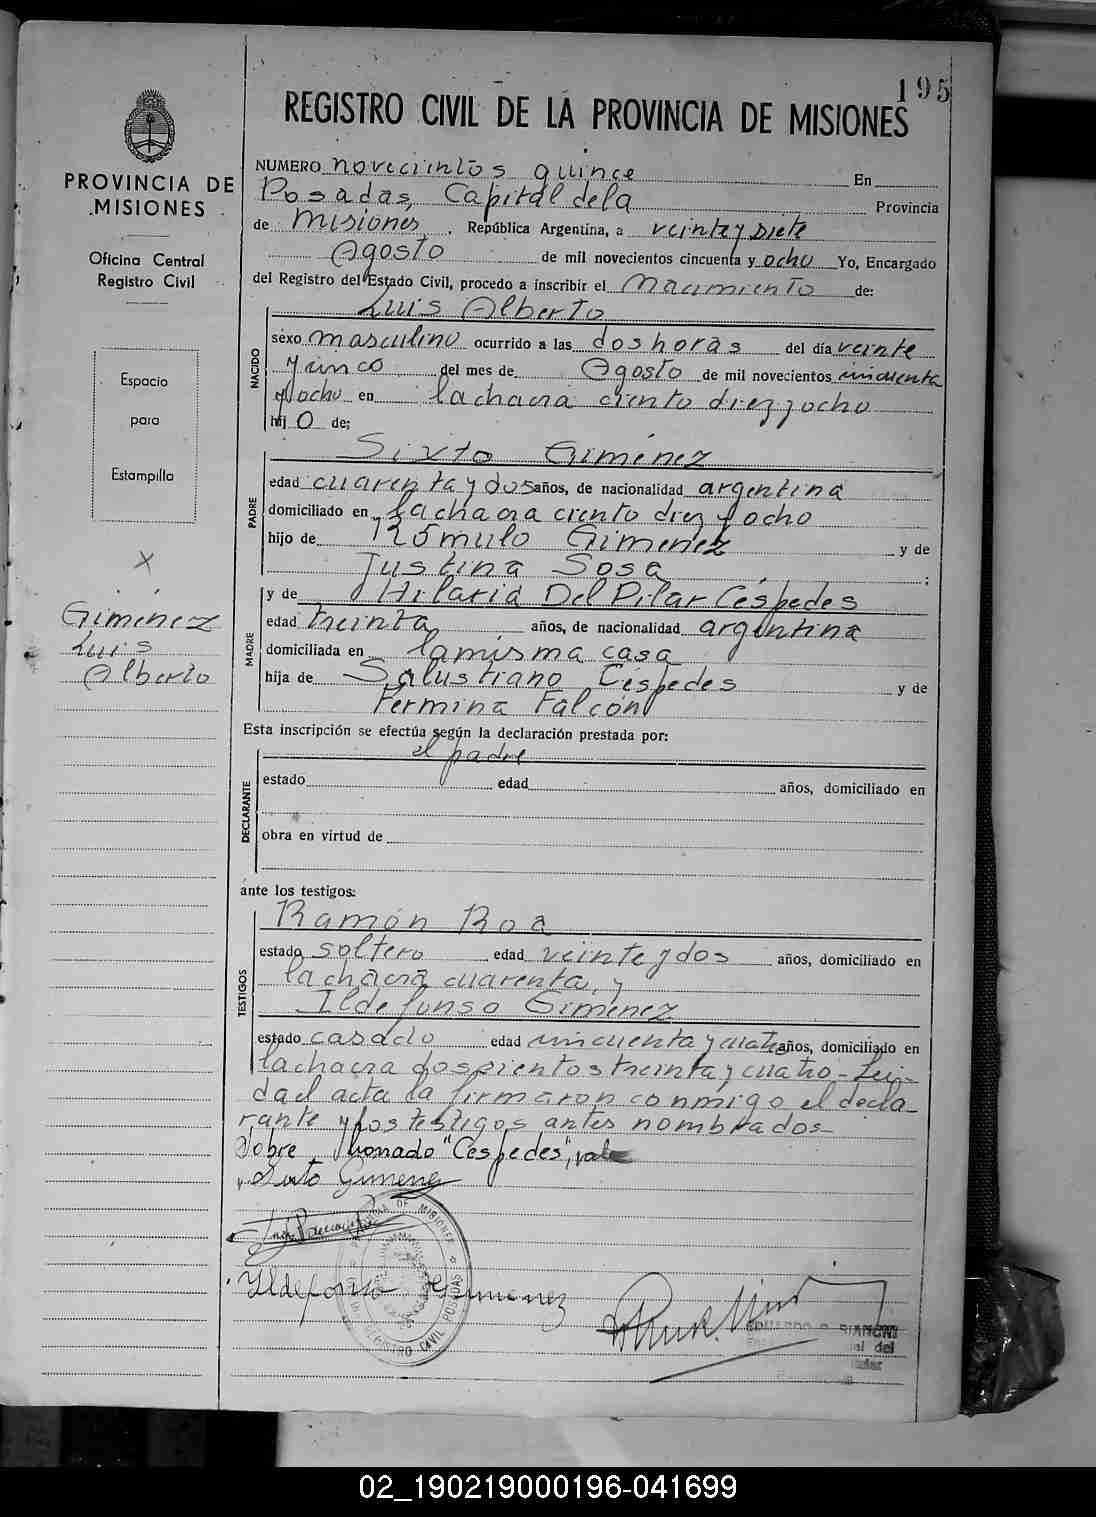 195
REGISTRO CIVIL DE LA PROVINCIA DE MISIONES
PROVINCIA DE
MISIONES
Oficina Central
Registro Civil
Espacio
para
Estampilla
X
Gimenez
Luis
Alberto
NUMERO novecientos quince En
Posadas, Capital dela Provincia
de Misiones, República Argentina, a veinte y siete
Agosto de mil novecientos cincuenta y ocho Yo, Encargado
del Registro del Estado Civil, procedo a inscribir el nacimiento de:
Luis Alberto
NACIDO
sexo masculino ocurrido a las dos horas del día veinte
y cinco del mes de Agosto de mil novecientos cincuenta
y ocho en la chacra ciento diez y ocho
hij o de:
Sixto Gimenez
PADRE
edad cuarenta y dos años, de nacionalidad argentina
domiciliado en la chacra ciento diez y ocho
hijo de Rómulo Gimenez y de
Justina Sosa ;
MADRE
y de Hilaria Del Pilar Céspedes
edad treinta años, de nacionalidad argentina
domiciliada en la misma casa
hija de Salustiano Céspedes y de
Fermina Falcón
Esta inscripción se efectúa según la declaración prestada por:
el padre
DECLARANTE
estado edad años, domiciliado en
obra en virtud de
ante los testigos:
TESTIGOS
Ramón Roa
estado soltero edad veinte y dos años, domiciliado en
la chacra cuarenta, y
Ildefonso Gimenez
estado casado edad cincuenta y cuatro años, domiciliado en
la chacra doscientos treinta y cuatro - Leí-
da el acta la firmaron conmigo el decla-
rante y los testigos antes nombrados-
Sobre borrado "Céspedes", vale
Sixto Gimenez
Ildefonso Gimenez
PROVINCIA DE MISIONES
REGISTRO CIVIL POSADAS
EDUARDO R. BIANCHI
02_190219000196-041699